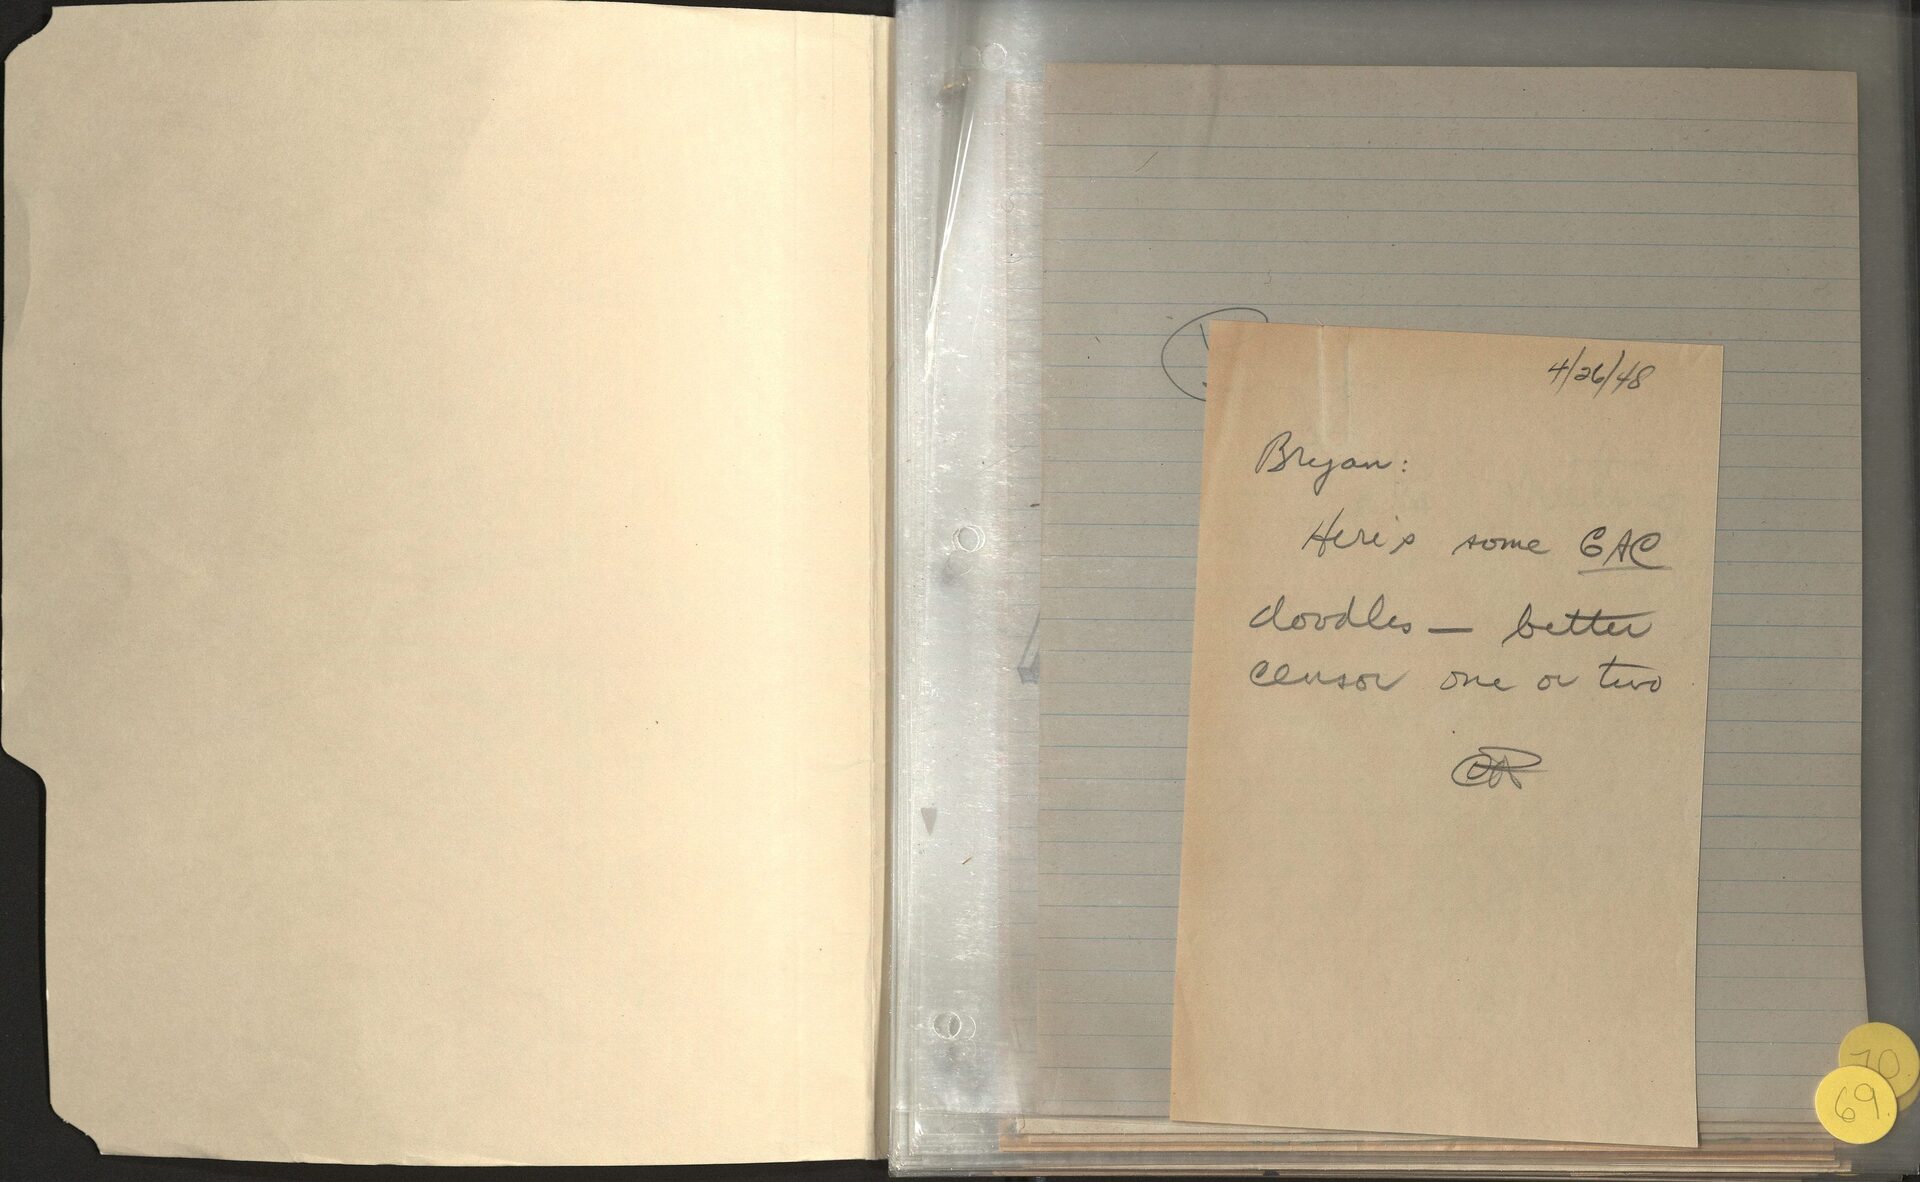 4/26/48
Bryan:
Here's some GAC
doodles — better
censor one or two
70
69